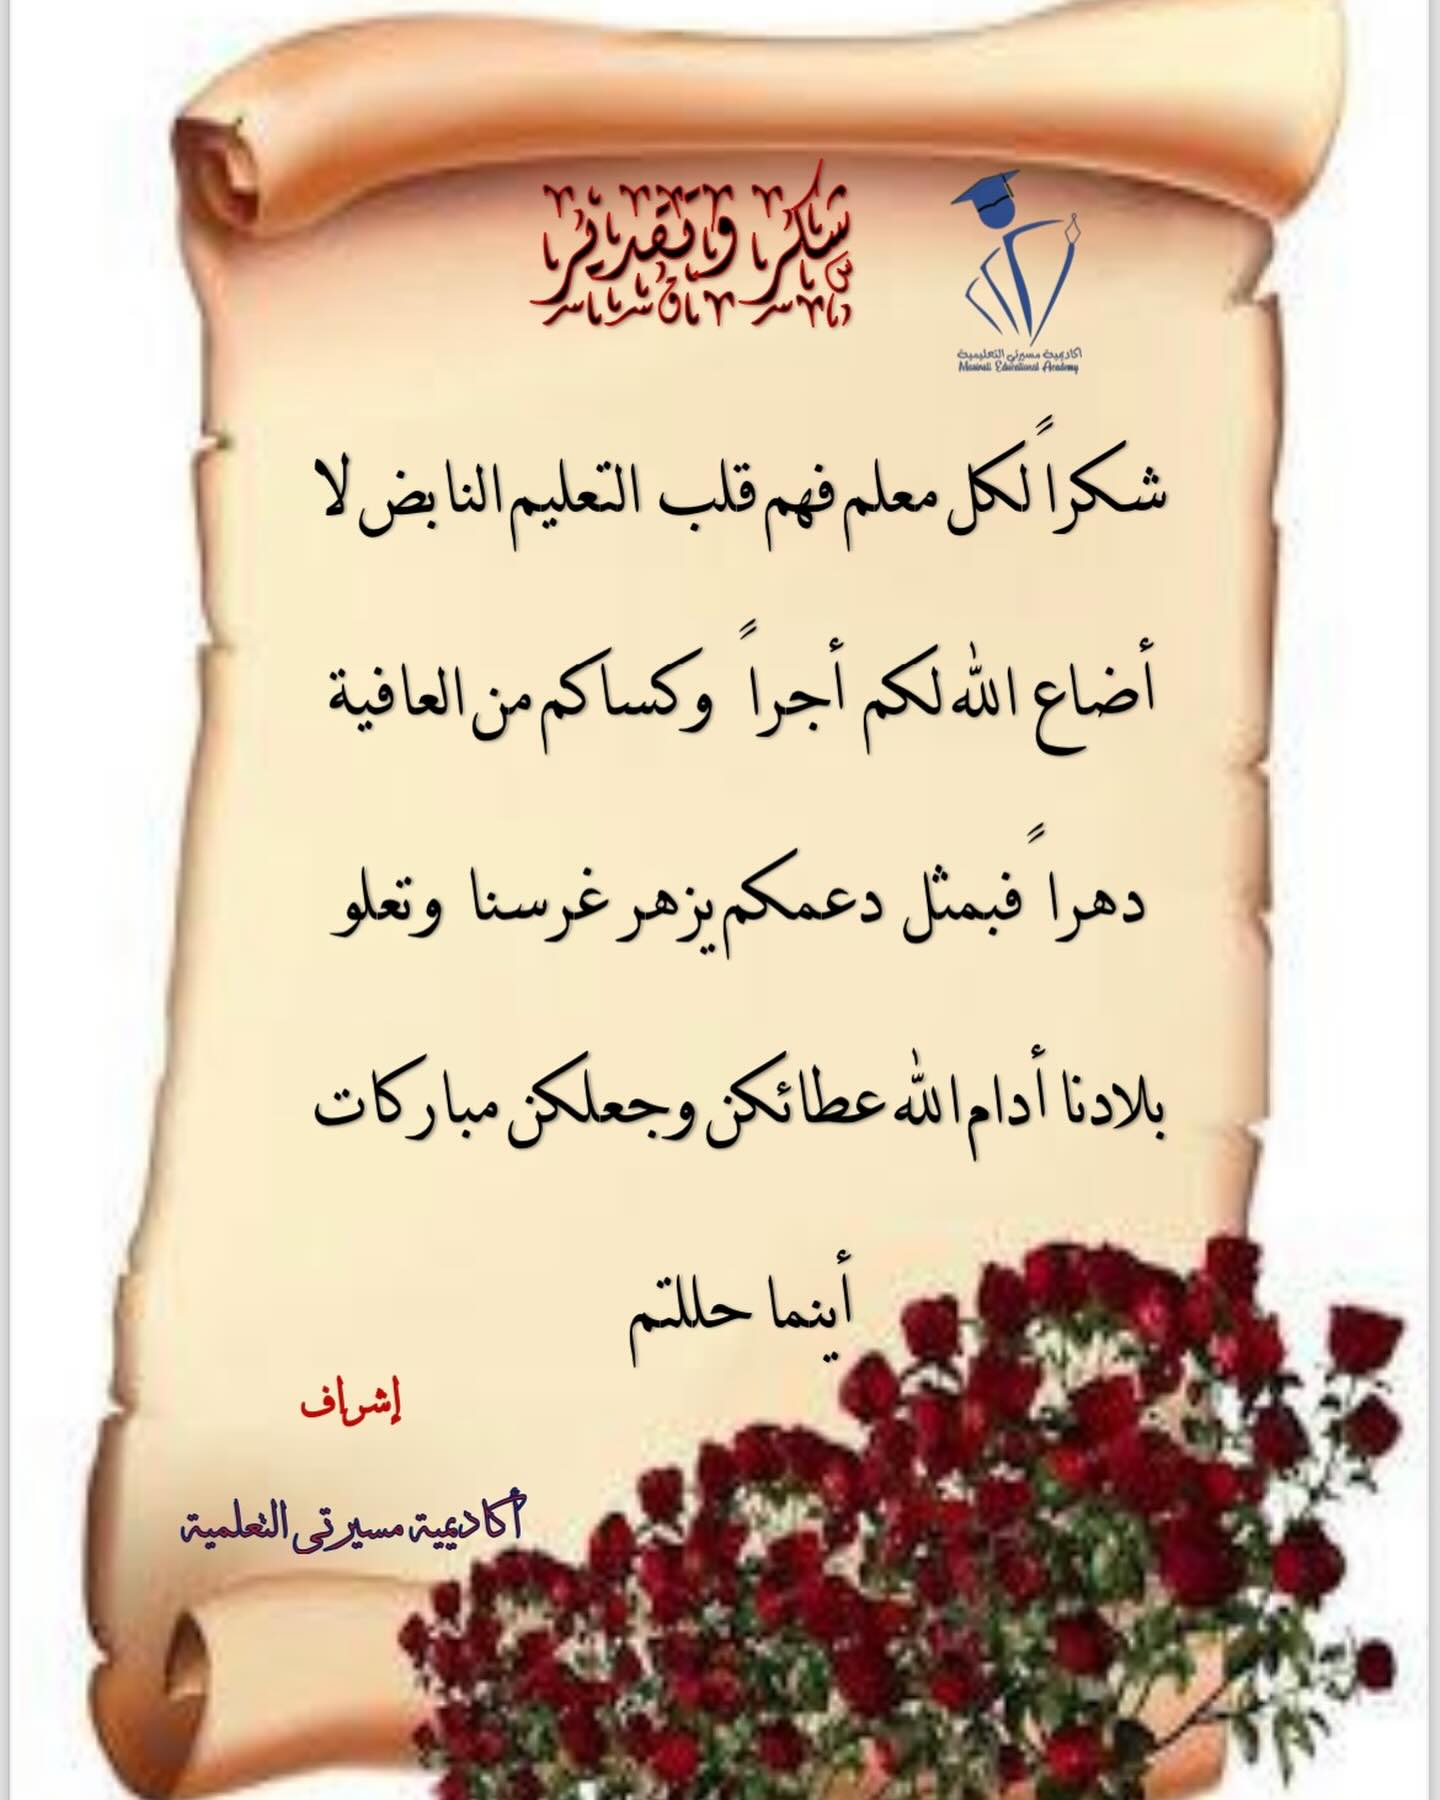 شكر وتقدير
أكاديمية مسيرتي التعليمية
Masirati Educational Academy
شكراً لكل معلم فهم قلب التعليم النابض لا
أضاع الله لكم أجراً وكساكم من العافية
دهراً فبمثل دعمكم يزهر غرسنا وتعلو
بلادنا أدام الله عطائكن وجعلكن مباركات
أينما حللتم
إشراف
أكاديمية مسيرتي التعلمية